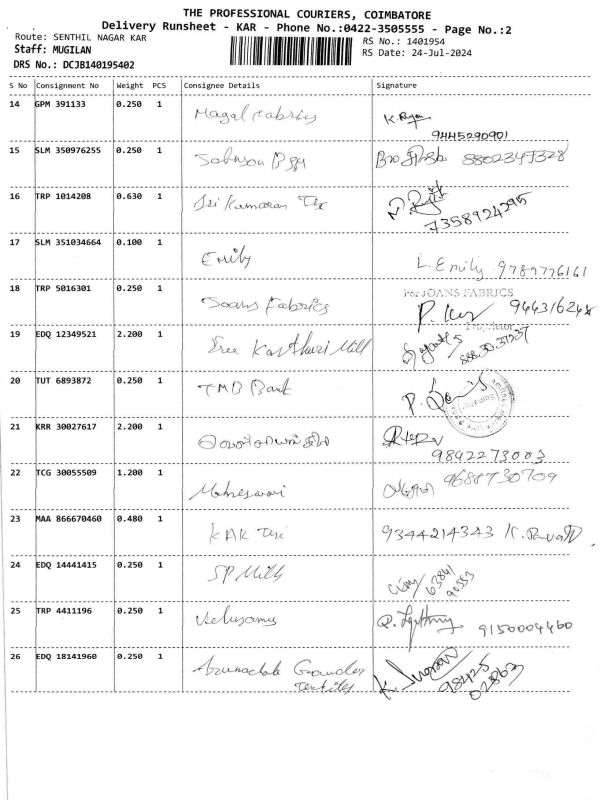 THE PROFESSIONAL COURIERS, COIMBATORE
Delivery Runsheet - KAR - Phone No.:0422-3505555 - Page No.:2
Route: SENTHIL NAGAR KAR
RS No.: 1401954
Staff: MUGILAN
RS Date: 24-Jul-2024
DRS No.: DCJB140195402
S No Consignment No Weight PCS Consignee Details Signature
14 GPM 391133 0.250 1 Magal Fabrics
9445290901
15 SLM 350976255 0.250 1 8802347328
16 TRP 1014208 0.630 1 Sri Kumaran Tex
7358924295
17 SLM 351034664 0.100 1 Emily L. Emily 9789776161
For JOANS FABRICS
18 TRP 5016301 0.250 1 Joans Fabrics
Proprietor
19 EDQ 12349521 2.200 1 Sree Kasthuri Mill
20 TUT 6893872 0.250 1 TMB Bank
21 KRR 30027617 2.200 1
9842273003
22 TCG 30055509 1.200 1 Maheswari 9688730709
23 MAA 866670460 0.480 1 KAK Tex 9344214343
24 EDQ 14441415 0.250 1 SP Mills 63841
90553
25 TRP 4411196 0.250 1 Velusamy 9150004460
26 EDQ 18141960 0.250 1 Arunachala Gounder
Textiles
98425
02863